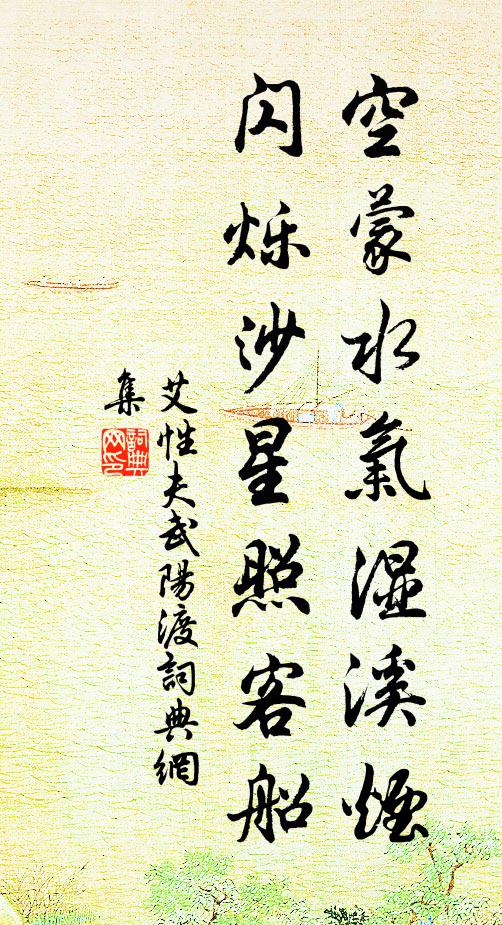 空蒙水氣湿溪煙
闪烁沙星照客船
艾性夫武陽渡詞典網
集
詞典网印